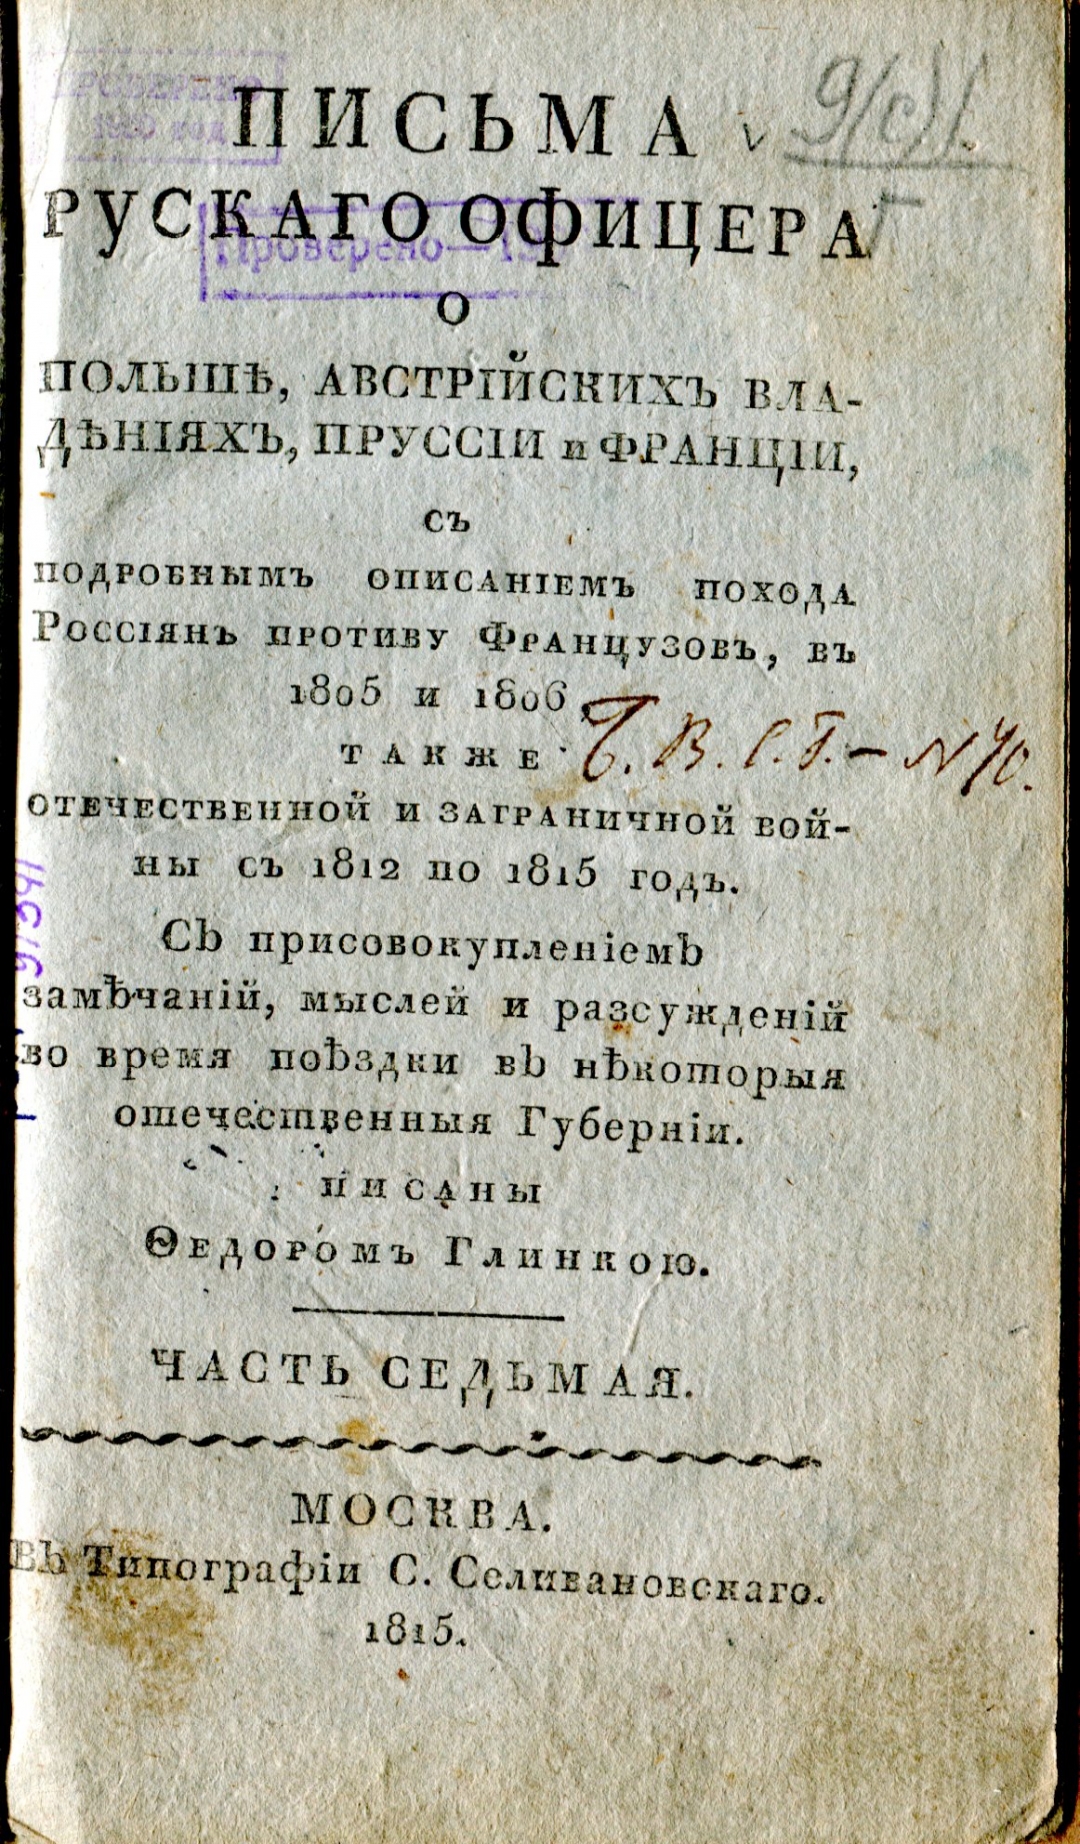 ПРОВЕРЕНО
ПИСЬМА
РУСКАГО ОФИЦЕРА
Проверено—
О
ПОЛЬШѢ, АВСТРІЙСКИХЪ ВЛА-
ДѢНІЯХЪ, ПРУССІИ и ФРАНЦІИ,
съ
подробнымъ описаніемъ похода
Россіянъ противу Французовъ, въ
1805 и 1806,
также
Ч. В. С. Г. — N 40.
отечественной и заграничной вой-
ны съ 1812 по 1815 годъ.
Съ присовокупленіемъ
замѣчаній, мыслей и разсужденій
во время поѣздки въ нѣкоторыя
отечественныя Губерніи.
писаны
Ѳедоромъ Глинкою.
ЧАСТЬ СЕДЬМАЯ.
МОСКВА.
Въ Типографіи С. Селивановскаго.
1815.